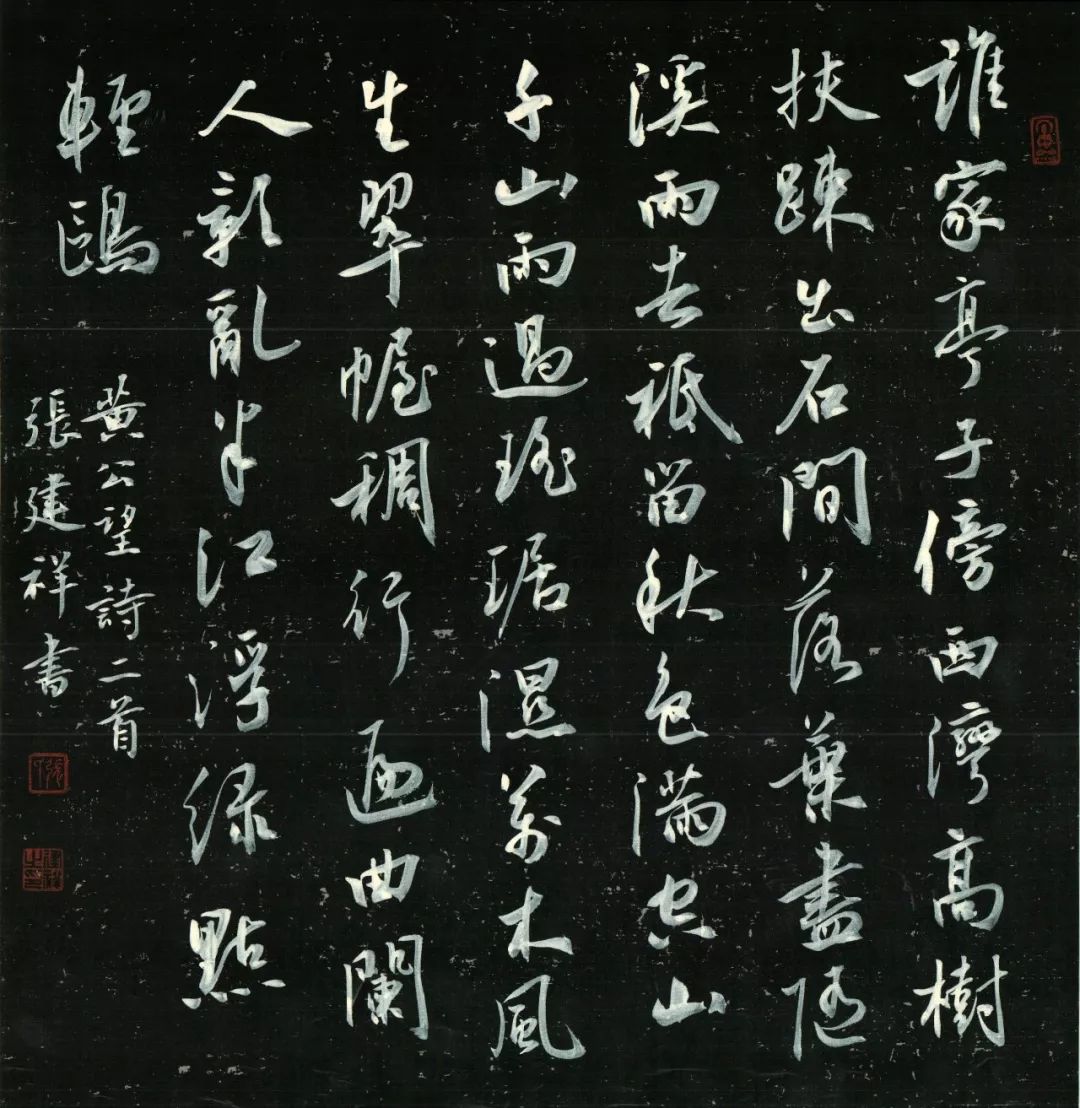 誰家亭子傍西灣高樹
扶踈出石間落葉盡隨
溪雨去祗留秋色滿空山
千山雨過琚濕萬木風
生翠幄稠行遍曲闌
人影亂半江浮綠點
輕鷗
黄公望詩二首
張建祥書